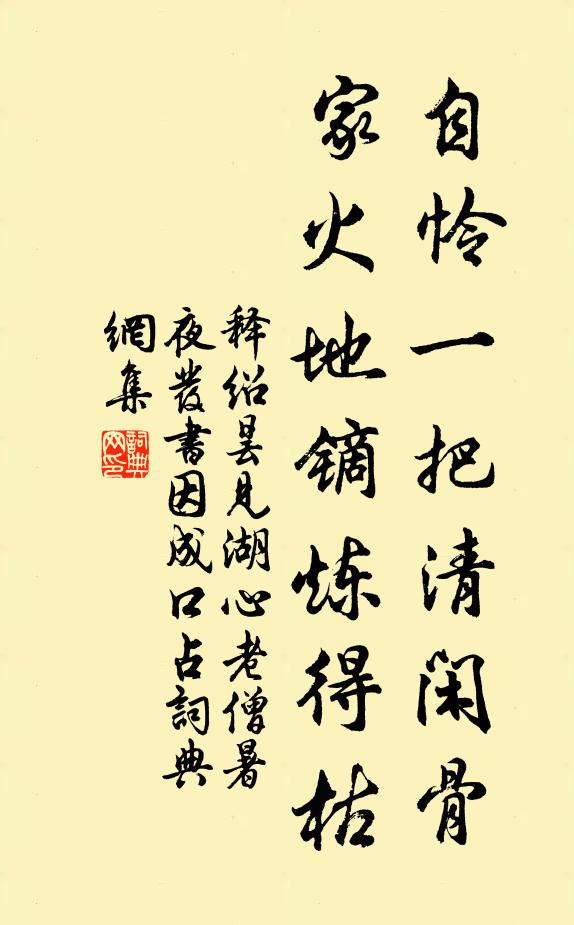 自怜一把清闲骨
家火地镝炼得枯
释绍昙见湖心老僧暑
夜發書因成口占詞典
網集
詞典
网印